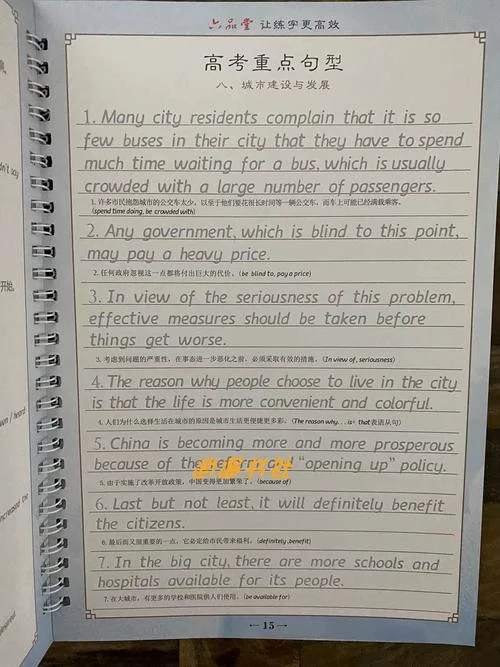 六品堂 让练字更高效
高考重点句型
八、城市建设与发展
1. Many city residents complain that it is so
few buses in their city that they have to spend
much time waiting for a bus, which is usually
crowded with a large number of passengers.
1. 许多市民抱怨城市的公交车太少，以至于他们要花很长时间等一辆公交车，而车上可能已经满载乘客。
(spend time doing, be crowded with)
2. Any government, which is blind to this point,
may pay a heavy price.
2. 任何政府忽视这一点都将付出巨大的代价。(be blind to, pay a price)
3. In view of the seriousness of this problem,
effective measures should be taken before
things get worse.
3. 考虑到问题的严重性，在事态进一步恶化之前，必须采取有效的措施。(In view of, seriousness)
4. The reason why people choose to live in the city
is that the life is more convenient and colorful.
4. 人们为什么选择生活在城市的原因是城市生活更便捷更多彩。(The reason why. . . is+ that表语从句)
5. China is becoming more and more prosperous
because of the reform and "opening up" policy.
5. 由于实施了改革开放政策，中国变得更加繁荣了。(because of)
6. Last but not least, it will definitely benefit
the citizens.
6. 最后而又很重要的一点，它必定给市民带来福利。(definitely ,benefit)
7. In the big city, there are more schools and
hospitals available for its people.
7. 在大城市，有更多的学校和医院供人们使用。(be available for)
15